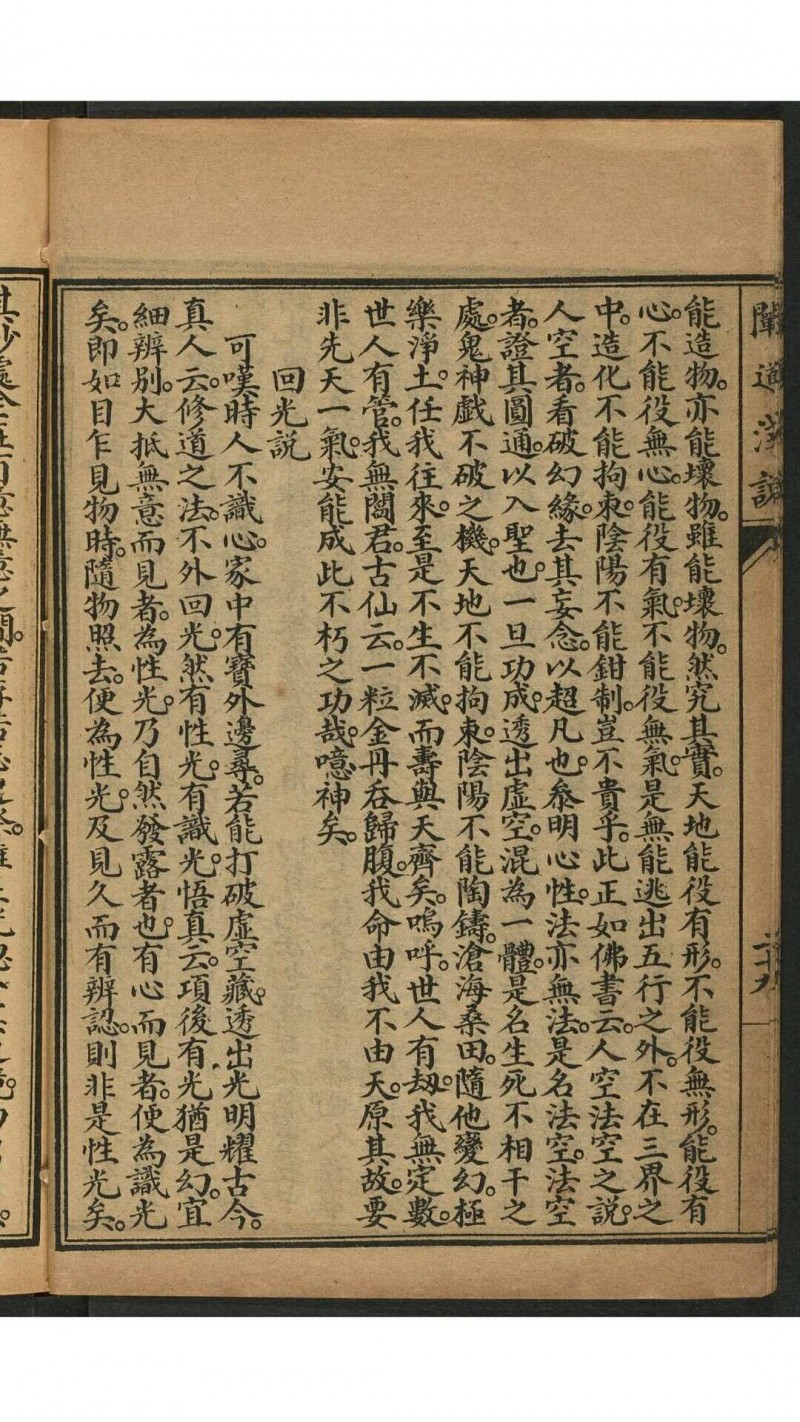 聞道淺說
二十九
能造物。亦能壞物。雖能壞物。然究其實。天地能役有形。不能役無形。能役有
心。不能役無心。能役有氣。不能役無氣。是無能逃出五行之外。不在三界之
中。造化不能拘束。陰陽不能鉗制。豈不貴乎。此正如佛書云。人空法空之說。
人空者。看破幻緣。去其妄念。以超凡也。叅明心性。法亦無法。是名法空。法空
者。證其圓通。以入聖也。一旦功成。透出虛空。混為一體。是名生死不相干之
處。鬼神戲不破之機。天地不能拘束。陰陽不能陶鑄。滄海桑田。隨他變幻。極
樂淨土。任我往來。至是不生不滅。而壽與天齊矣。嗚呼。世人有劫。我無定數。
世人有管。我無閻君。古仙云。一粒金丹吞歸腹。我命由我不由天。原其故。要
非先天一氣。安能成此不朽之功哉。噫神矣。
回光說
可嘆時人不識心。家中有寶外邊尋。若能打破虛空藏。透出光明耀古今。
真人云。修道之法。不外回光。然有性光。有識光。悟真云。項後有光猶是幻。宜
細辨別。大抵無意而見者。為性光。乃自然發露者也。有心而見者。便為識光
矣。即如目乍見物時。隨物照去。便為性光。及見久而有辨認。則非是性光矣。